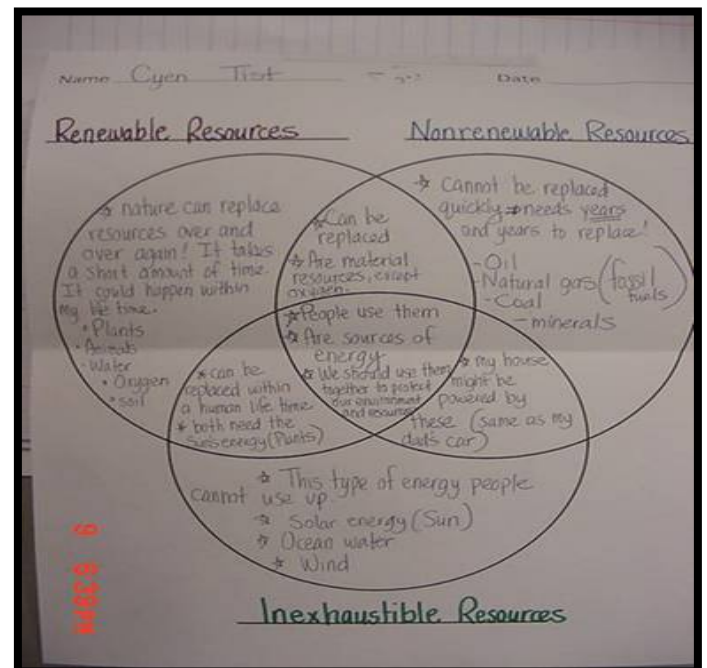 Name Cyen Tist Date
Renewable Resources
Nonrenewable Resources
☆ nature can replace
resources over and
over again! It takes
a short amount of time.
It could happen within
my life time.
• Plants
• Animals
- Water
• Oxygen
• soil
☆ Can be
replaced
☆ Are material
resources, except
oxygen.
☆ Cannot be replaced
quickly → needs years
and years to replace!
- Oil
- Natural gas (fossil
fuals)
- Coal
- minerals
☆ People use them
☆ Are sources of
energy
☆ We should use them
together to protect
our environment
and resources
* can be
replaced within
a human life time
* both need the
sun's energy (Plants)
☆ my house
might be
powered by
these (same as my
dad's car)
☆ This type of energy people
cannot use up.
☆ Solar energy (Sun)
☆ Ocean water
☆ Wind
Inexhaustible Resources